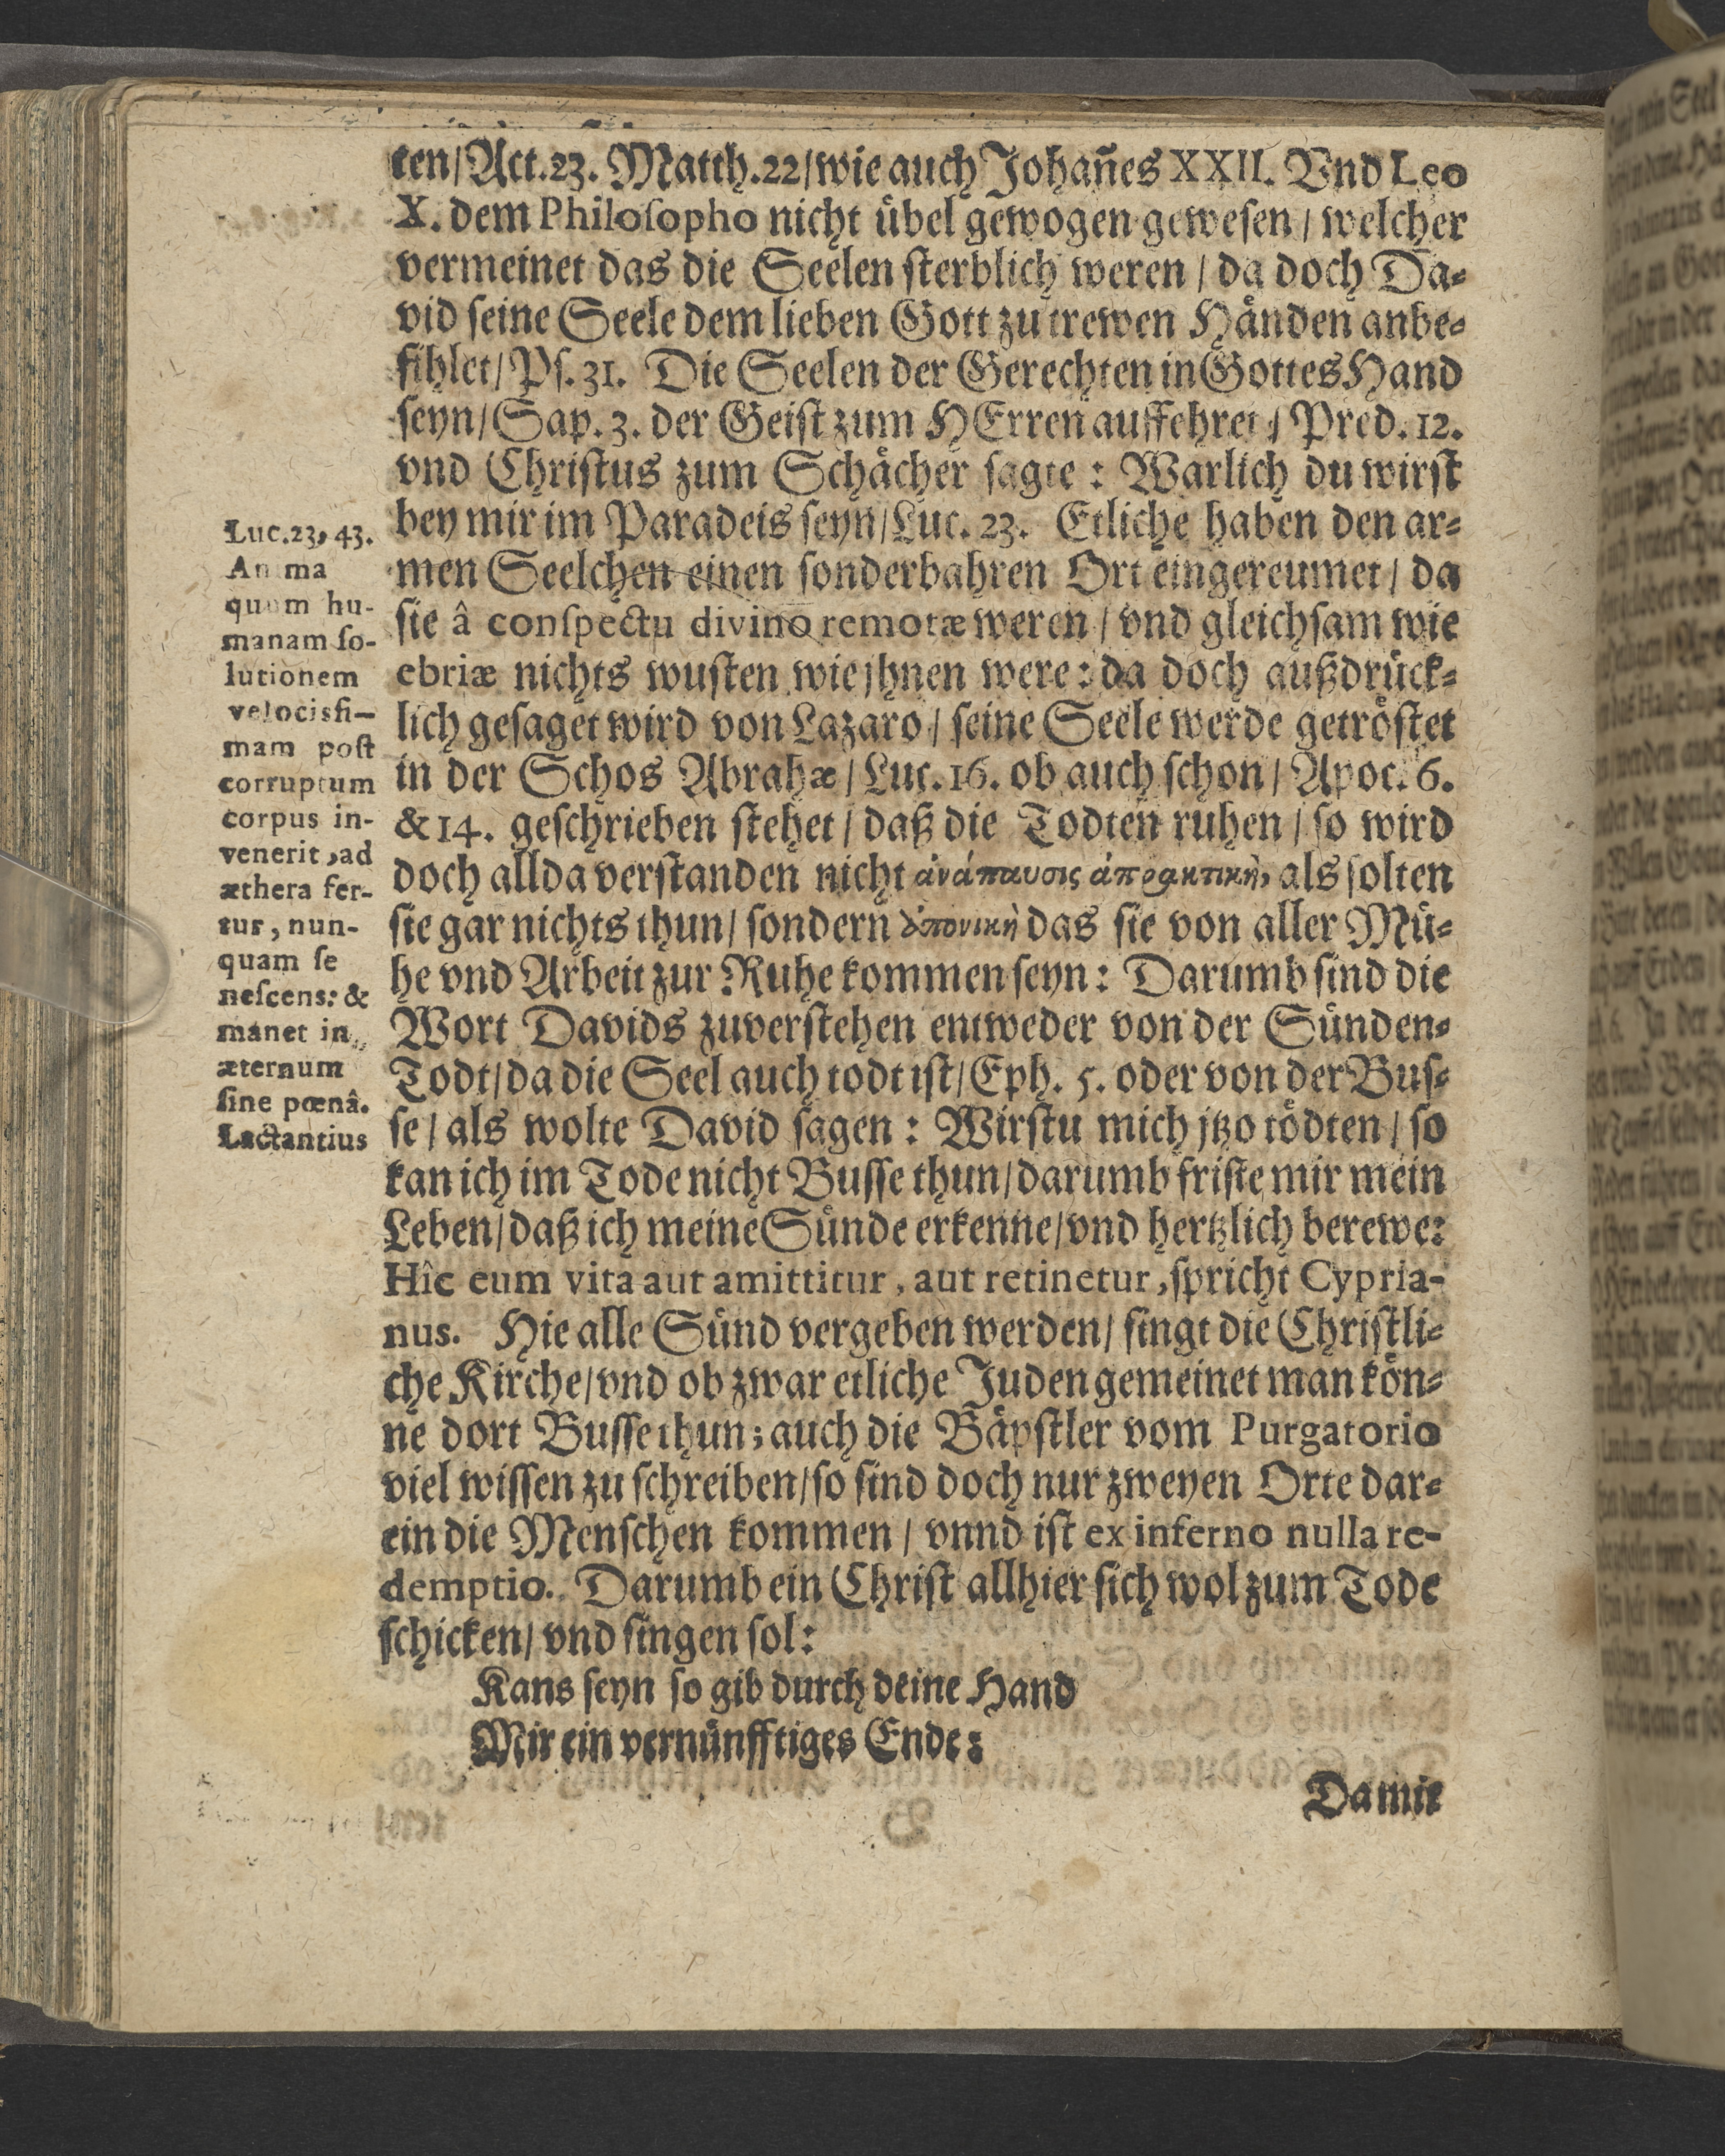 ten/Act.23. Matth.22/wie auch Johañes XXII. Vnd Leo
X. dem Philosopho nicht uͤbel gewogen gewesen / welcher
vermeinet das die Seelen sterblich weren / da doch Da-
vid seine Seele dem lieben Gott zu trewen Haͤnden anbe-
fihlet/Ps. 31. Die Seelen der Gerechten in Gottes Hand
seyn/Sap. 3. der Geist zum HErren auffehret / Pred. 12.
vnd Christus zum Schaͤcher sagte : Warlich du wirst
bey mir im Paradeis seyn/Luc. 23. Etliche haben den ar-
men Seelchen einen sonderbahren Ort eingereumet / da
sie â conspectu divino remotæ weren / vnd gleichsam wie
ebriæ nichts wusten wie jhnen were : da doch außdruͤck-
lich gesaget wird von Lazaro / seine Seele werde getroͤstet
in der Schos Abrahæ / Luc. 16. ob auch schon / Apoc. 6.
& 14. geschrieben stehet / daß die Todten ruhen / so wird
doch allda verstanden nicht ἀνάπαυσις ἀπρακτικὴ, als solten
sie gar nichts thun/ sondern ἀπονικὴ das sie von aller Muͤ-
he vnd Arbeit zur Ruhe kommen seyn : Darumb sind die
Wort Davids zuverstehen entweder von der Suͤnden-
Todt/da die Seel auch todt ist/Eph. 5. oder von der Bus-
se / als wolte David sagen : Wirstu mich jtzo toͤdten / so
kan ich im Tode nicht Busse thun/darumb friste mir mein
Leben/daß ich meine Suͤnde erkenne/vnd hertzlich berewe:
Hîc eum vita aut amittitur, aut retinetur, spricht Cypria-
nus. Hie alle Suͤnd vergeben werden/ singt die Christli-
che Kirche/vnd ob zwar etliche Juden gemeinet man koͤn-
ne dort Busse thun; auch die Baͤpstler vom Purgatorio
viel wissen zu schreiben/so sind doch nur zweyen Orte dar-
ein die Menschen kommen / vnnd ist ex inferno nulla re-
demptio. Darumb ein Christ allhier sich wol zum Tode
schicken/ vnd singen sol:
Kans seyn so gib durch deine Hand
Mir ein vernuͤnfftiges Ende:
Damit
Luc.23, 43.
Anima
quum hu-
manam so-
lutionem
velocissi-
mam post
corruptum
corpus in-
venerit, ad
æthera fer-
tur, nun-
quam se
nescens: &
manet in
æternum
sine pœnâ.
Lactantius